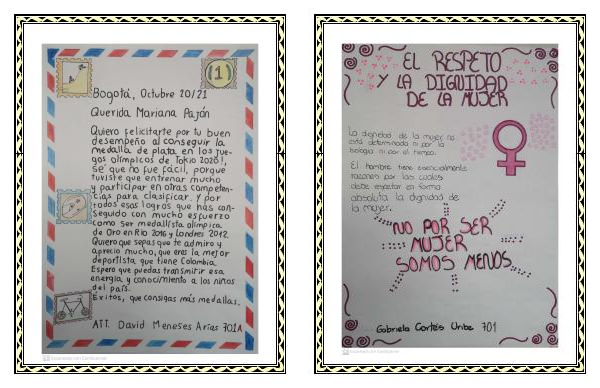 1
Bogotá, Octubre 20/21
Querida Mariana Pajón
Quiero felicitarte por tu buen
desempeño al conseguir la
medalla de plata en los jue-
gos olímpicos de Tokio 2020!,
se que no fue fácil, porque
tuviste que entrenar mucho
y participar en otras competen-
cias para clasificar. Y por
todos esos logros que has con-
seguido con mucho esfuerzo
como ser medallista olímpica
de Oro en Rio 2016 y Londres 2012.
Quiero que sepas que te admiro y
aprecio mucho, que eres la mejor
deportista que tiene Colombia.
Espero que puedas transmitir esa
energía y conocimiento a los niños
del país.
Exitos, que consigas más medallas.
ATT. David Meneses Arias 701A
Escaneado con CamScanner
EL RESPETO
Y LA DIGNIDAD
DE LA MUJER
La dignidad de la mujer no
está determinada ni por la
biología ni por el tiempo.
El hombre tiene esencialmente
razones por las cuales
debe respetar en forma
absoluta la dignidad de
la mujer.
NO POR SER
MUJER
SOMOS MENOS
Gabriela Cortés Uribe 701